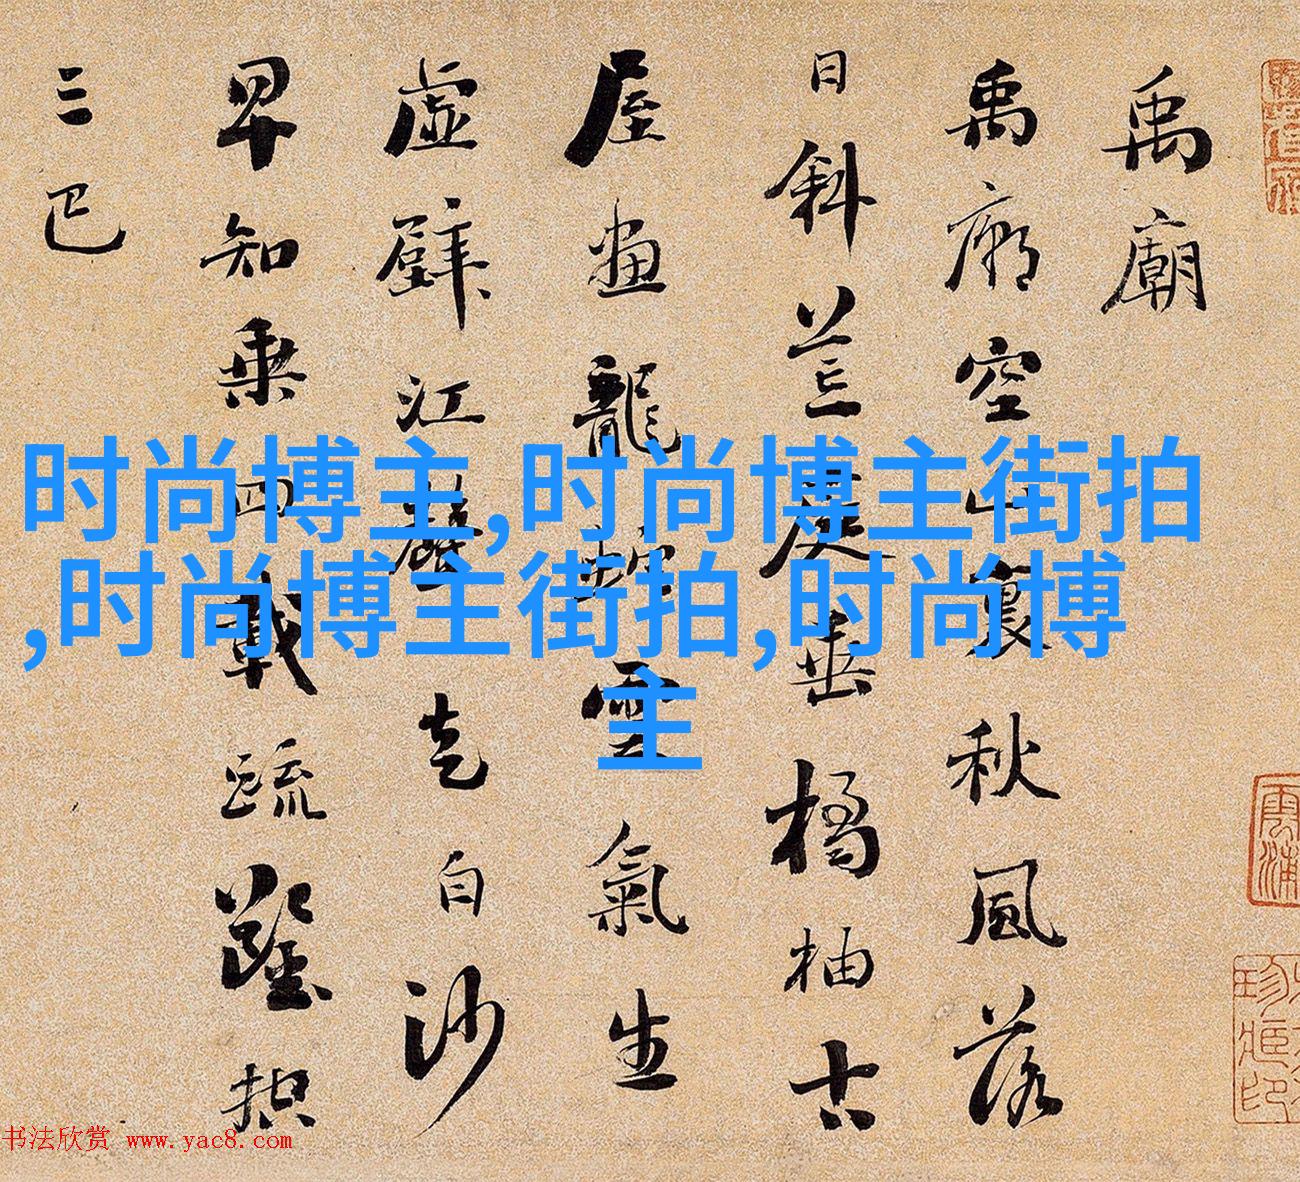 禹廟
禹廟空山裏秋風落
日斜荒庭垂橘柚古
屋畫龍蛇雲氣生
虚壁江聲走白沙
早知乘四載疏鑿控
三巴
时尚博主,时尚博主街拍
,时尚博主街拍,时尚博
主
书法欣赏 www.yac8.com